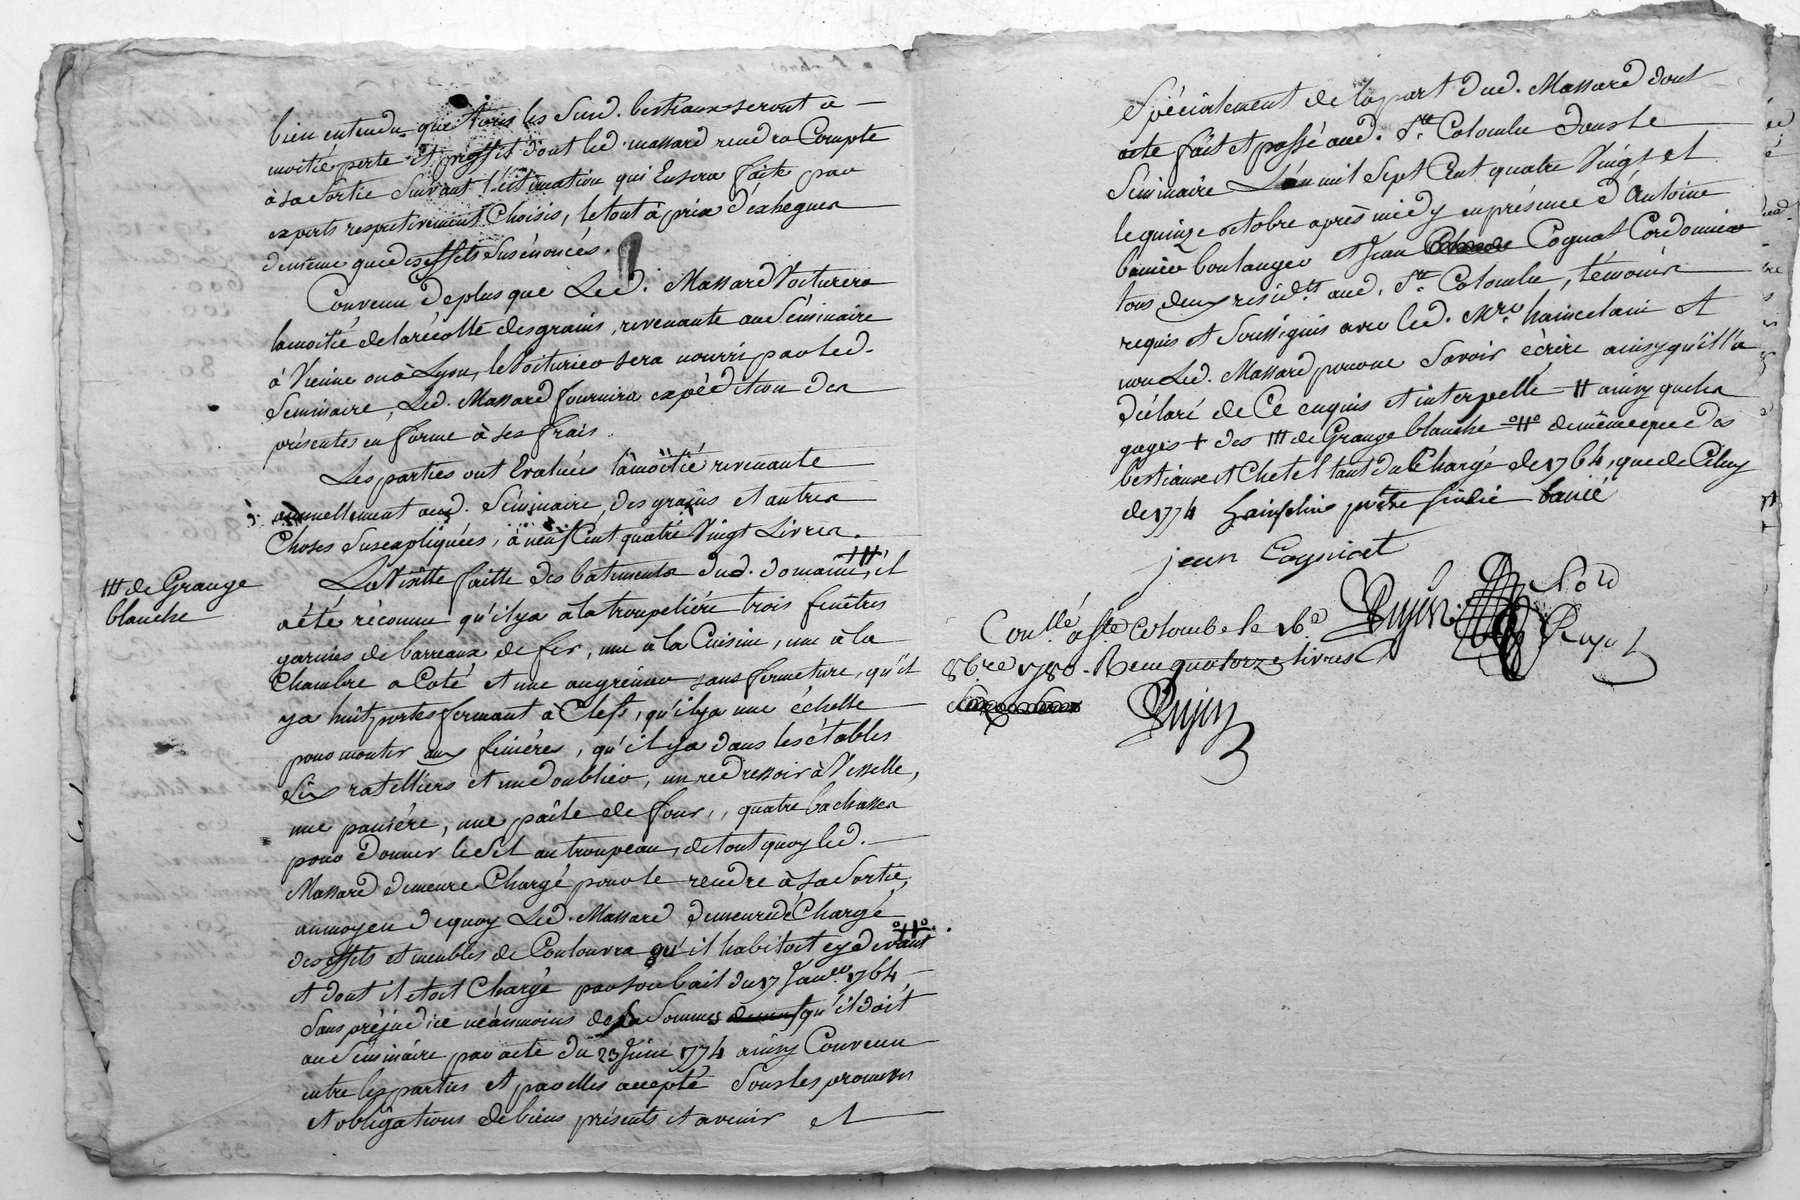 bien entendu que tous les Susd. bestiaux seront à
moitié perte et proffit dont led. massard rendra Compte
à sa Sortie Suivant l'estimation qui En sera faite par
experts respectivement Choisis, le tout à prix d'exheguer
de meme que des effets Susénoncés.
Convenu de plus que Led. Massard Voiturera
la moitié de la récolte des grains, revenante au Séminaire
à Vienne ou à Lyon, le Voiturier sera nourri par led.
Séminaire, Led. Massard fournira expédition des
présentes en forme à ses frais.
Les parties ont Evaluées la moitié revenante
annuellement aud. Séminaire, des grains et autres
Choses Susexpliquées, à neuf Cent quatre Vingt Livres.
La Visitte faitte des batiments dud. domaine, il
ttt de Grange
blanche
a été réconnu qu'il y a à la troupeliére trois fenêtres
garnies de barreaux de fer, une à la Cuisine, une à la
Chambre a Coté et une au grenier sans fermeture, qu'il
y a huit portes fermant à Clefs, qu'il y a une échelle
pour monter aux feniéres, qu'il y a dans les étables
Six ratelliers et un doublier, un redressoir à Vesselle,
une paniére, une paële de four, quatre bachasses
pour donner le Sel au troupeau, de tout quoy led.
Massard demeure Chargé pour le rendre à sa Sortie,
au moyen de quoy Led. Massard demeure déChargé
des effets et meubles de Coulouvra qu'il habitoit cy devant
et dont il etoit Chargé par son bail du 17 Janer. 1764,
Sans préjudice néanmoins de la Somme qu'il doit
au Séminaire par acte du 23 Juin 1774 ainsy Convenu
entre les parties et par elles accepté Sous les promesses
et obligations de biens présents et avenir et
Spécialement de la part dud. Massard dont
acte fait et passé aud. Ste. Colombe dans le
Séminaire L'an mil Sept Cent quatre Vingt et
le quinze octobre après midy en présence d'Antoine
banié boulanger et Jean Cognat Cordonnier
tous deux residts. aud. Ste. Colombe, témoins
requis et Soussignés avec led. Mre. hainselain et
non Led. Massard pour ne Savoir écrire ainsy qu'il l'a
déclaré de Ce enquis et interpellé # ainsy que les
gages + des ttt de Grange blanche o#o de même que des
bestiaux et Chetel tant du Chargé de 1764, que de Celuy
de 1774 hainselin prêtre sindic banié
jean Cognat
Dujin Nore
Royal
Conllé. à Ste Colombe le 26e
8bre 1780. Recu quatorze livres
Dujin